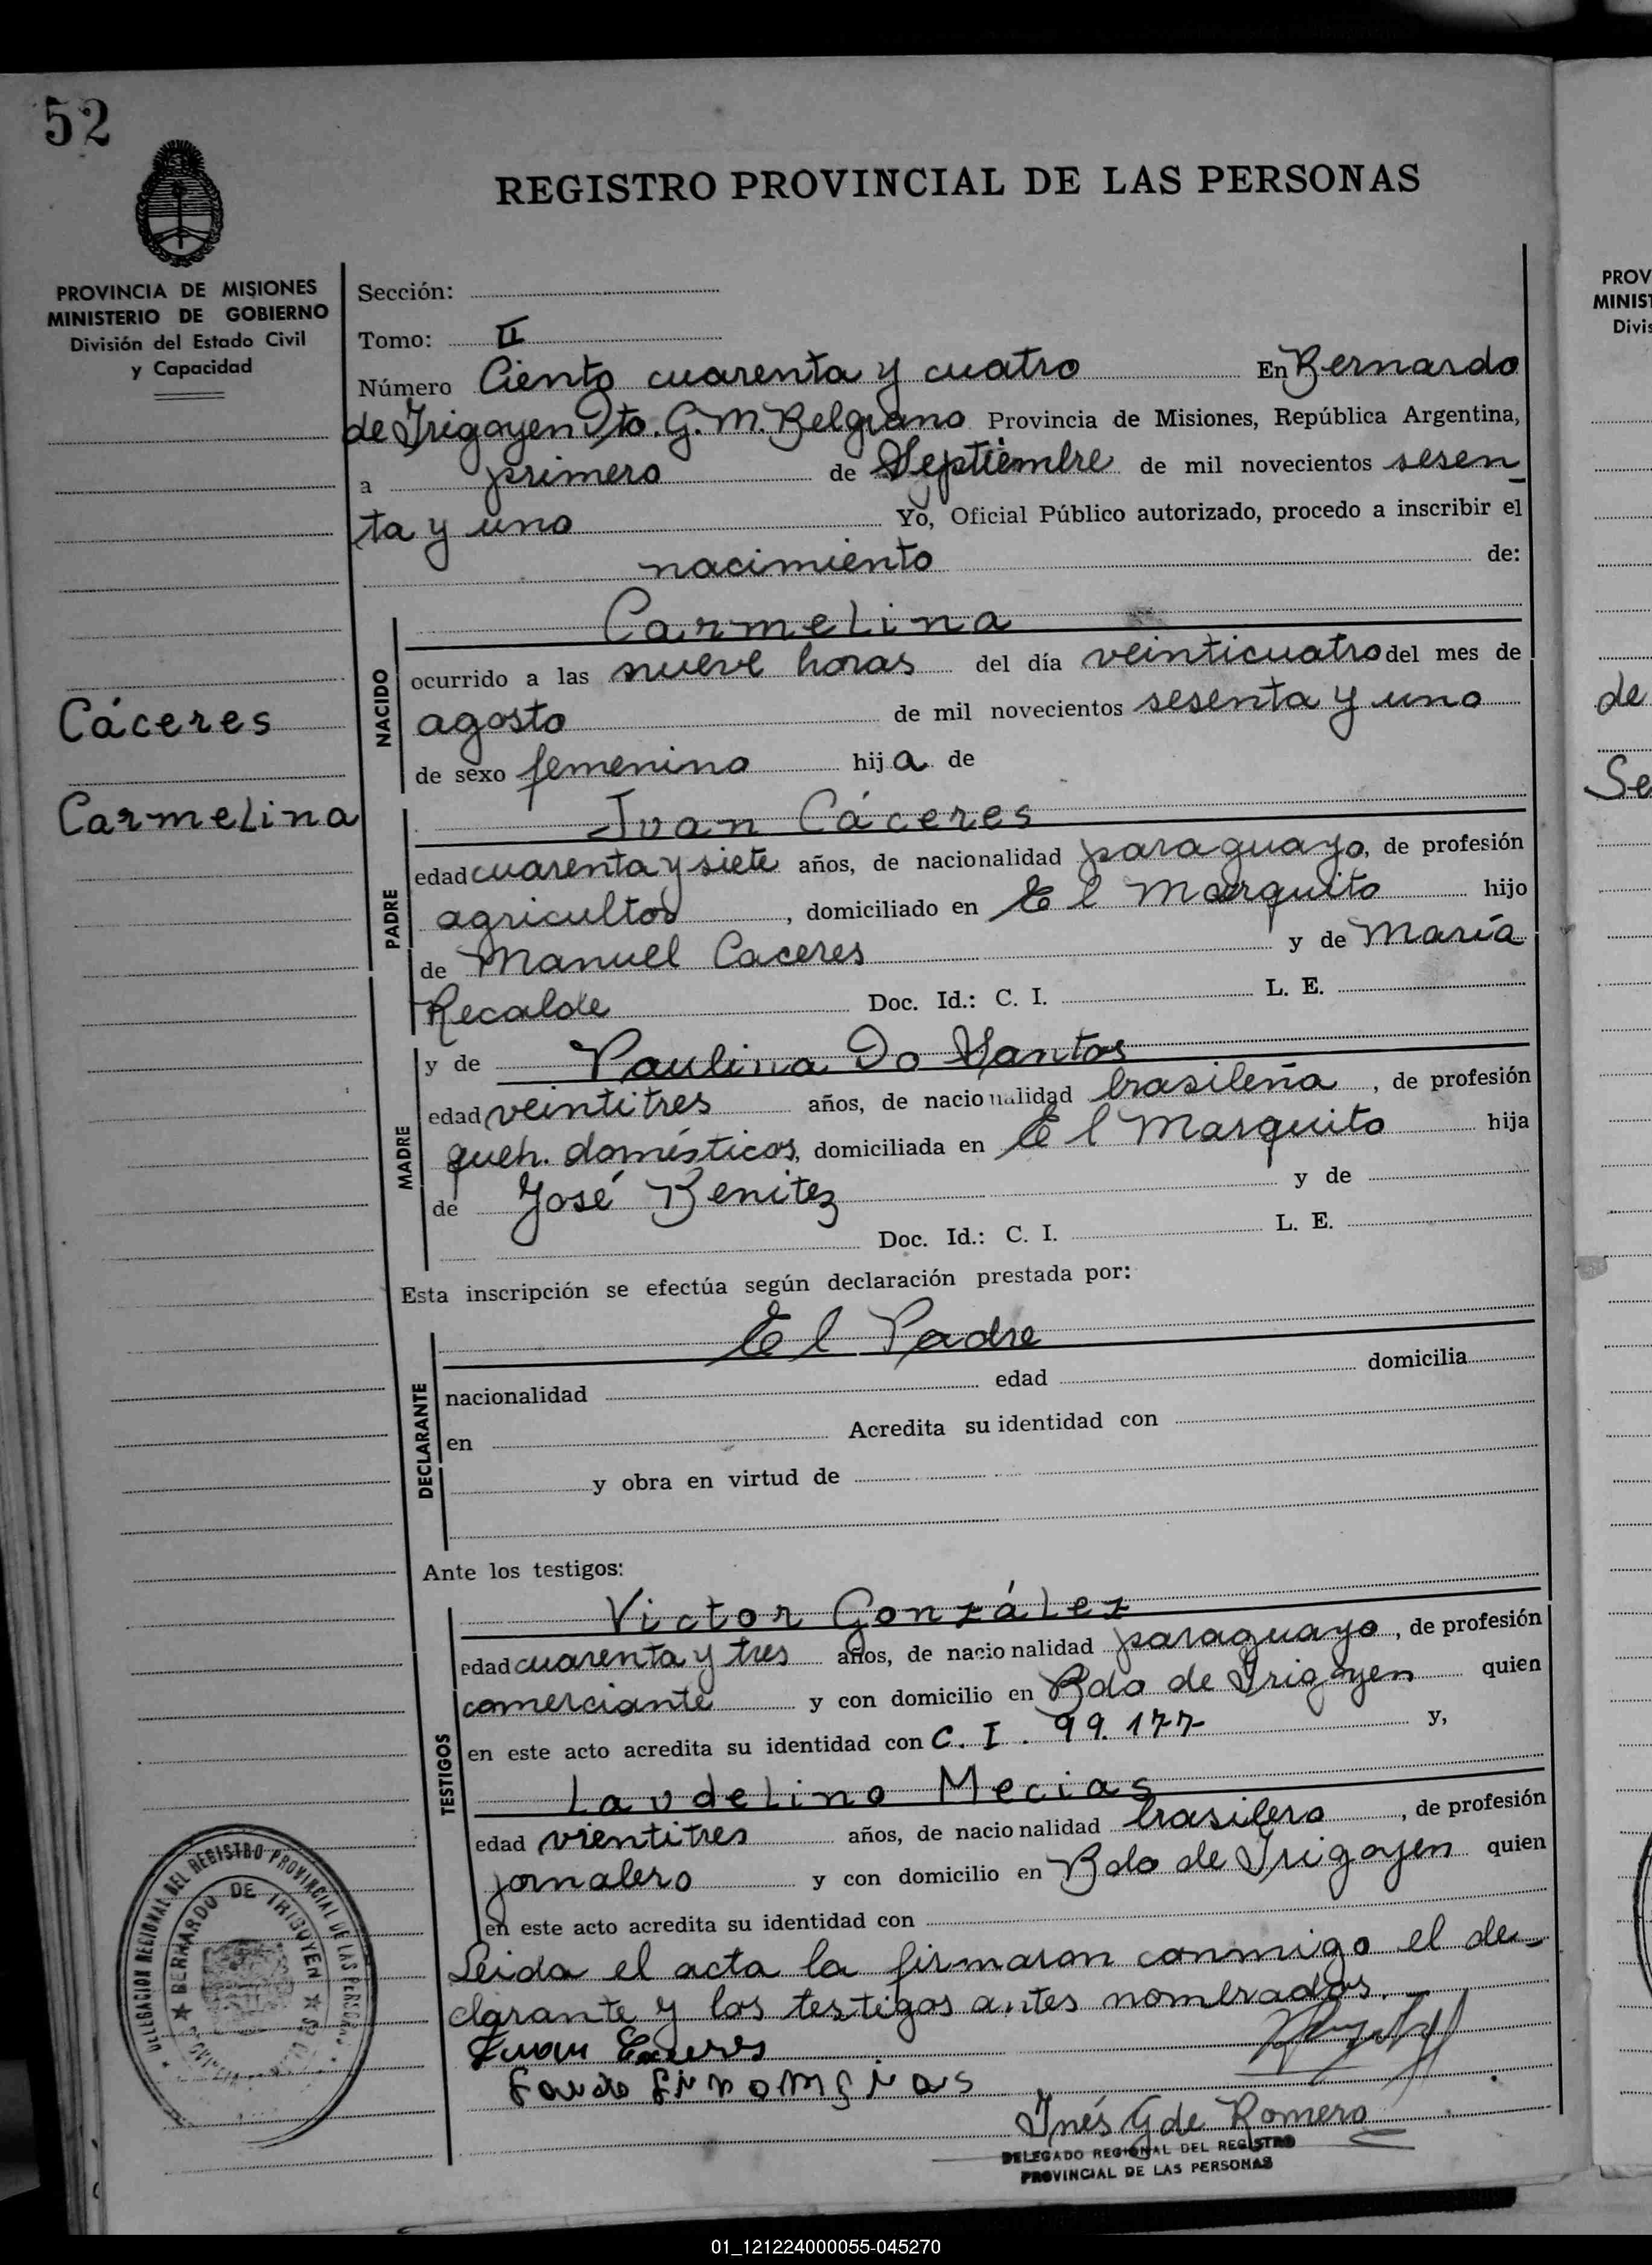 52
REGISTRO PROVINCIAL DE LAS PERSONAS
PROVINCIA DE MISIONES
MINISTERIO DE GOBIERNO
División del Estado Civil
y Capacidad
Sección:
Tomo: II
Número Ciento cuarenta y cuatro En Bernardo
de Irigoyen Dto. G. M. Belgrano Provincia de Misiones, República Argentina,
a primero de Septiembre de mil novecientos sesen
ta y uno Yo, Oficial Público autorizado, procedo a inscribir el
nacimiento de:
Cáceres
Carmelina
NACIDO
Carmelina
ocurrido a las nueve horas del día veinticuatro del mes de
agosto de mil novecientos sesenta y uno
de sexo femenino hija de
PADRE
Juan Cáceres
edad cuarenta y siete años, de nacionalidad paraguayo, de profesión
agricultor, domiciliado en El Marquito hijo
de Manuel Caceres y de María
Recalde Doc. Id.: C. I. L. E.
MADRE
y de Paulina Do Santos
edad veintitres años, de nacionalidad brasileña, de profesión
queh. domésticos, domiciliada en El Marquito hija
de José Benitez y de
Doc. Id.: C. I. L. E.
Esta inscripción se efectúa según declaración prestada por:
DECLARANTE
El Padre
nacionalidad edad domicilia
en Acredita su identidad con
y obra en virtud de
Ante los testigos:
TESTIGOS
Victor González
edad cuarenta y tres años, de nacionalidad paraguayo, de profesión
comerciante y con domicilio en Bdo de Irigoyen quien
en este acto acredita su identidad con C. I. 99.177 y,
Laudelino Mecias
edad vientitres años, de nacionalidad brasilero, de profesión
jornalero y con domicilio en Bdo de Irigoyen quien
en este acto acredita su identidad con
Leida el acta la firmaron conmigo el de-
clarante y los testigos antes nombrados.
Juan Caceres
Inés G de Romero
DELEGADO REGIONAL DEL REGISTRO
PROVINCIAL DE LAS PERSONAS
DELEGACION REGIONAL DEL REGISTRO PROVINCIAL DE LAS PERSONAS
BERNARDO DE IRIGOYEN
PROV
MINIST
Divis
de
Se
01_121224000055-045270